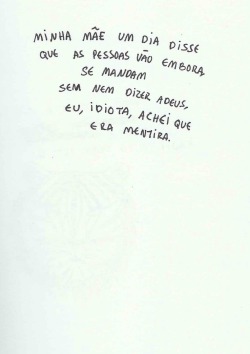 MINHA MÃE UM DIA DISSE
QUE AS PESSOAS VÃO EMBORA
SE MANDAM
SEM NEM DIZER ADEUS,
EU, IDIOTA, ACHEI QUE
ERA MENTIRA.